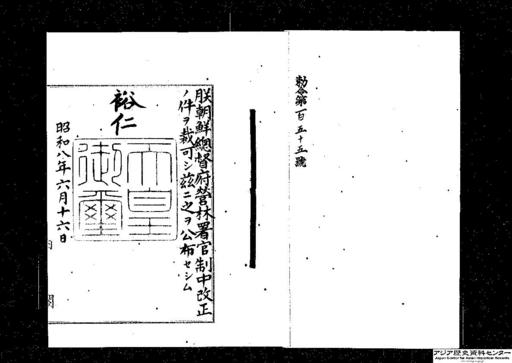 勅令第百五十五號
朕朝鮮總督府營林署官制中改正
ノ件ヲ裁可シ茲ニ之ヲ公布セシム
裕仁
天皇御璽
昭和八年六月十六日
内閣
アジア歴史資料センター
Japan Center for Asian Historical Records